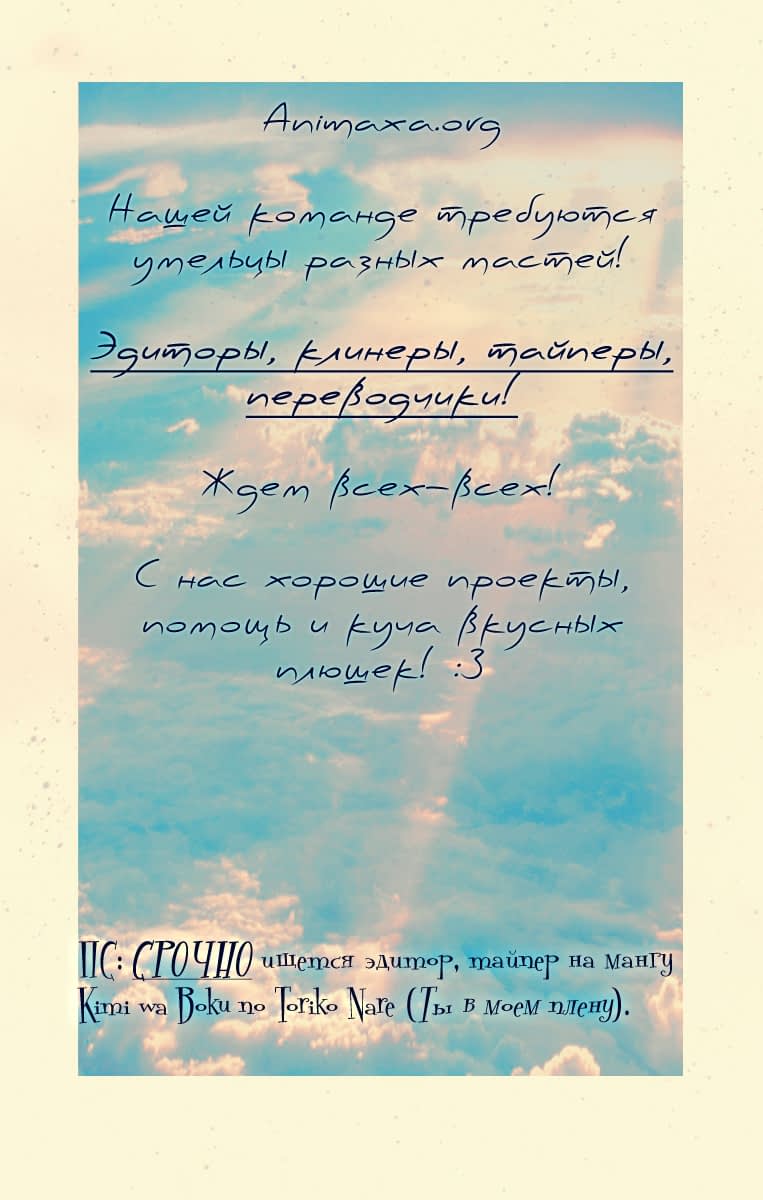 Animaxa.org
Нашей команде требуются
умельцы разных мастей!
Эдиторы, клинеры, тайперы,
переводчики!
Ждем всех-всех!
С нас хорошие проекты,
помощь и куча вкусных
плюшек! :3
ПС: СРОЧНО ищется эдитор, тайпер на мангу
Kimi wa Boku no Toriko Nare (Ты в моем плену).